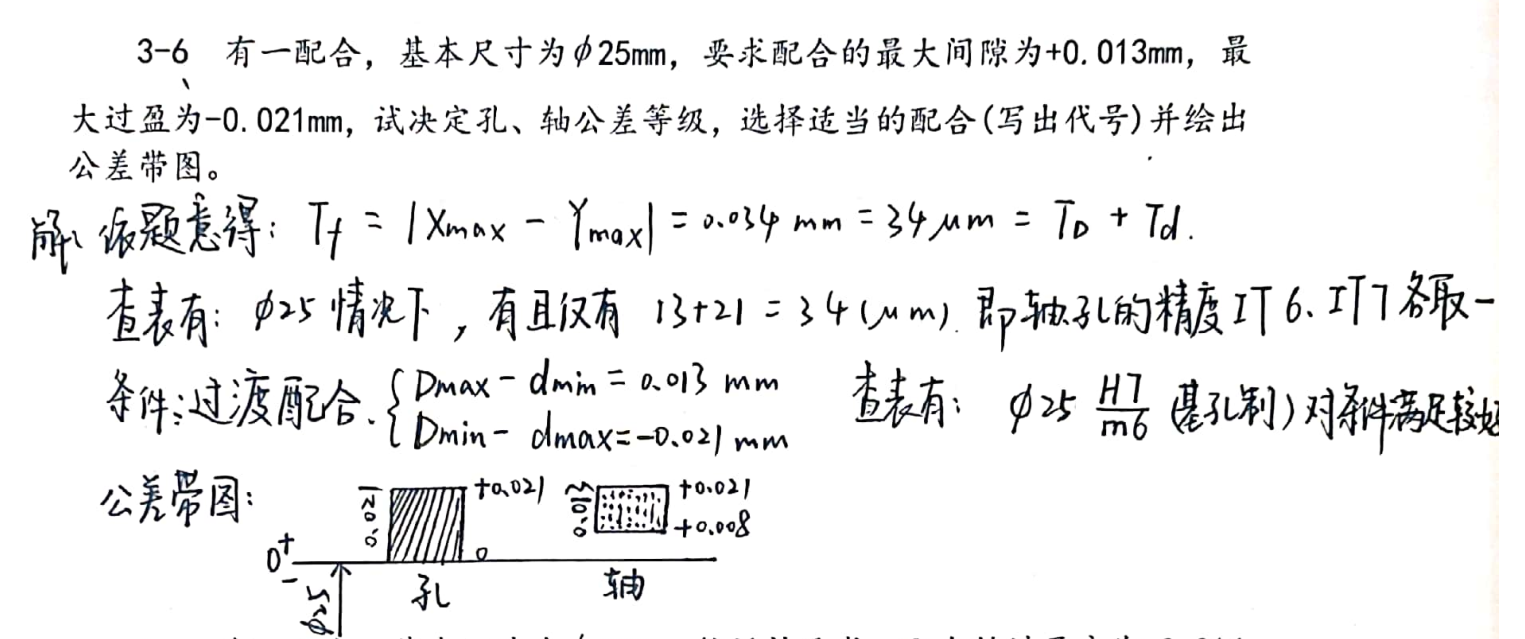 3-6 有一配合，基本尺寸为φ25mm，要求配合的最大间隙为+0.013mm，最
大过盈为-0.021mm，试决定孔、轴公差等级，选择适当的配合(写出代号)并绘出
公差带图。
解：依题意得：Tf = |Xmax - Ymax| = 0.034 mm = 34 μm = TD + Td.
查表有：φ25 情况下，有且仅有 13+21 = 34 (μm). 即轴孔的精度IT6、IT7各取一
条件：过渡配合. { Dmax - dmin = 0.013 mm 查表有：φ25 H7/m6 (基孔制) 对条件满足较好
Dmin - dmax = -0.021 mm
公差带图： 0.021 +0.021 0.013 +0.021
+0.008
0 + - 0
φ25 孔 轴